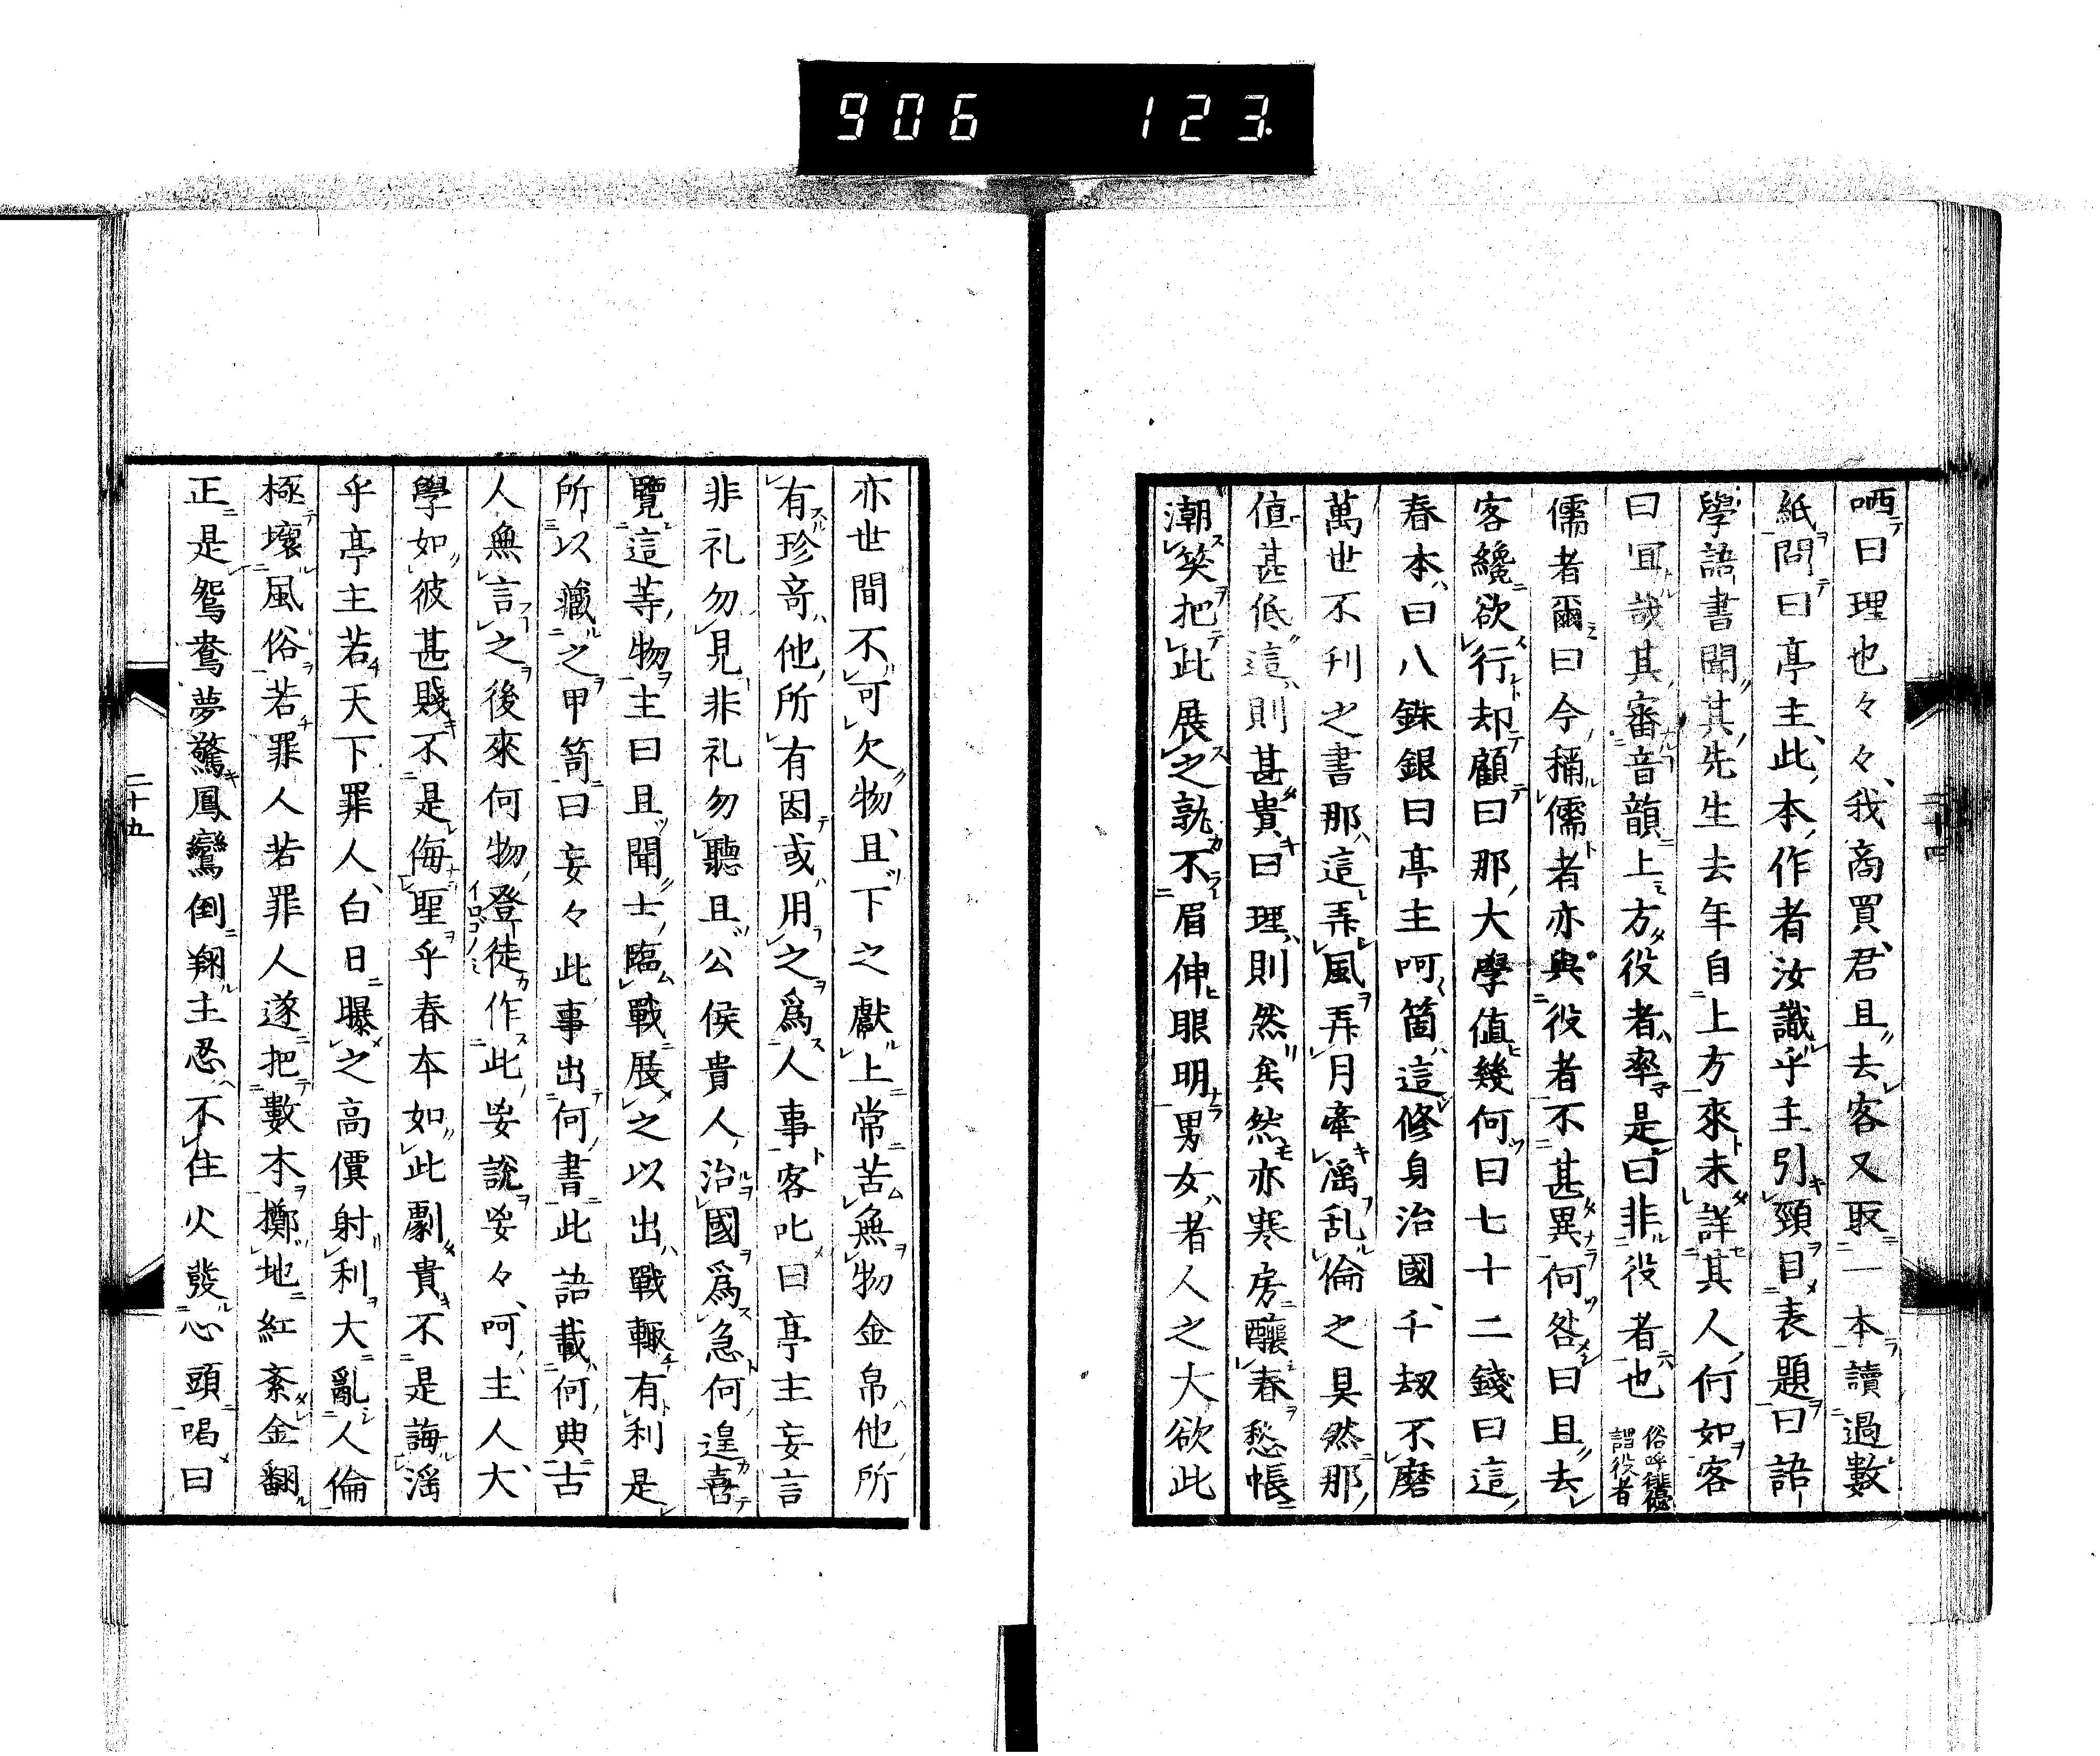 906 123
哂曰理也々々我商買君且去客又取一本讀過數
紙問曰亭主此本作者汝識乎主引頸目表題曰語
學語書聞其先生去年自上方來未詳其人何如客
曰冝哉其審音韻上方役者率是曰非役者也
俗呼俳優
謂役者
儒者爾曰今稱儒者亦與役者不甚異何咎曰且去
客纔欲行却顧曰那大學値幾何曰七十二錢曰這
春本曰八銖銀曰亭主呵箇這修身治國千刼不磨
萬世不刊之書那這弄風弄月牽滛乱倫之具然那
値甚低這則甚貴曰理則然矣然亦寒房釀春愁帳
潮笑把此展之孰不眉伸眼明男女者人之大欲此
亦世間不可欠物且下之獻上常苦無物金帛他所
有珍竒他所有因或用之爲人事客叱曰亭主妄言
非礼勿見非礼勿聽且公侯貴人治國爲急何遑喜
覽這等物主曰且聞士臨戰展之以出戰輙有利是
所以藏之甲笥曰妄々此事出何書此語載何典古
人無言之後來何物登徒作此妄說妄々呵主人大
學如彼甚賤不是侮聖乎春本如此劇貴不是誨滛
乎亭主若天下罪人白日曝之高價射利大亂人倫
極壞風俗若罪人若罪人遂把數本擲地紅紊金翻
正是鴛鴦夢驚鳳鸞倒翔主忍不住火發心頭喝曰
二十九